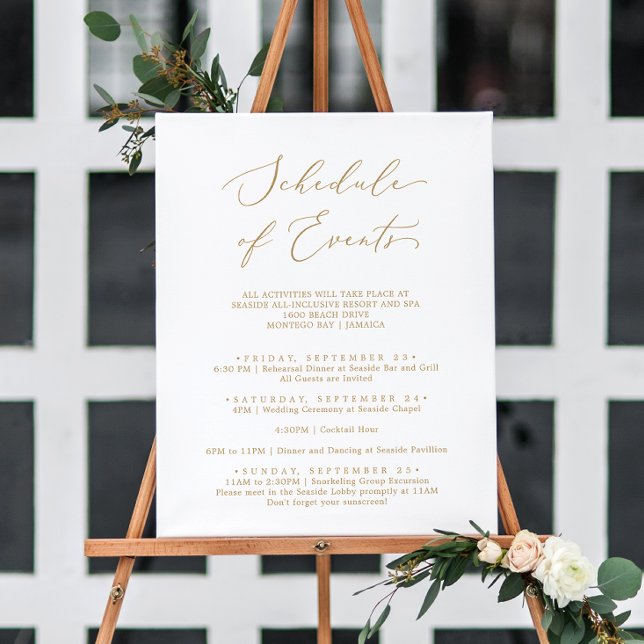 Schedule
of Events
ALL ACTIVITIES WILL TAKE PLACE AT
SEASIDE ALL-INCLUSIVE RESORT AND SPA
1600 BEACH DRIVE
MONTEGO BAY | JAMAICA
• FRIDAY, SEPTEMBER 23 •
6:30 PM | Rehearsal Dinner at Seaside Bar and Grill
All Guests are Invited
• SATURDAY, SEPTEMBER 24 •
4PM | Wedding Ceremony at Seaside Chapel
4:30PM | Cocktail Hour
6PM to 11PM | Dinner and Dancing at Seaside Pavillion
• SUNDAY, SEPTEMBER 25 •
11AM to 2:30PM | Snorkeling Group Excursion
Please meet in the Seaside Lobby promptly at 11AM
Don't forget your sunscreen!